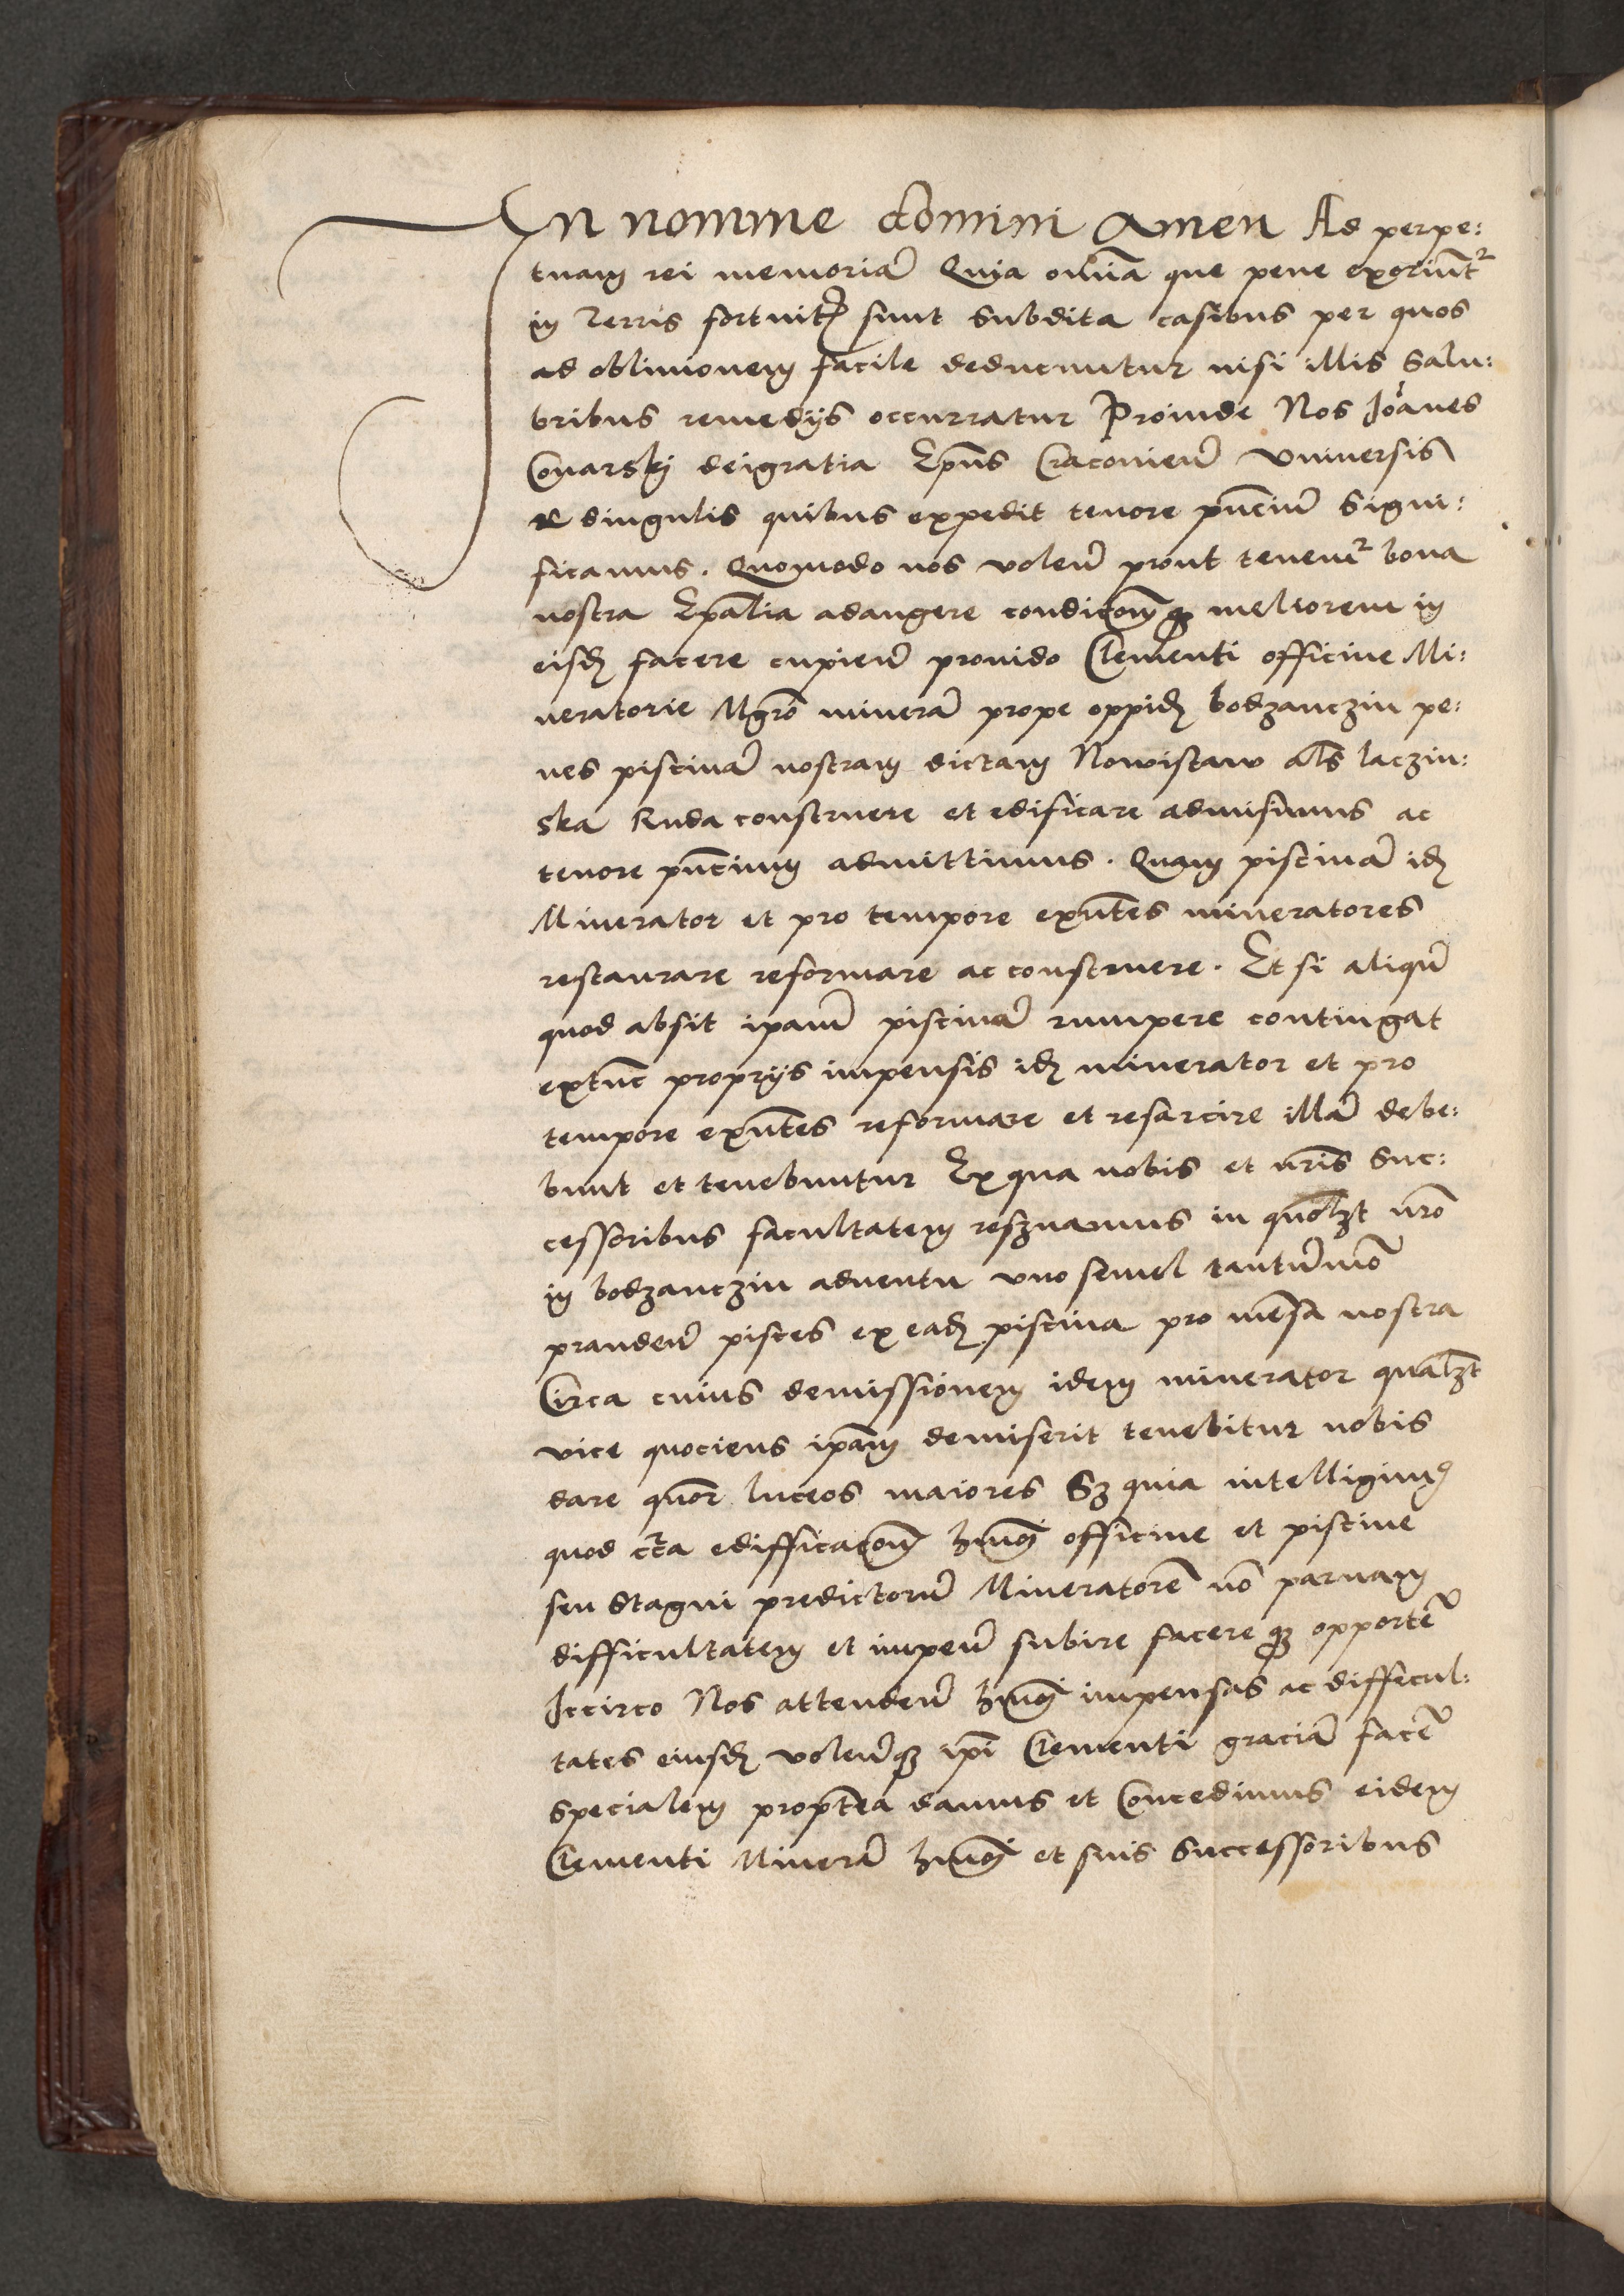 In nomine domini Amen Ad perpe:
tuam rei memoriā Quia om̄ia que pene exoriūt᷑
in Terris fortuitꝭ sunt subdita casibus per quos
ad obliuionem facile deducuntur nisi illis salu:
bribus remedijs occurratur Proinde Nos Joānes
Conarskj deigratia Ep̄us Cracovień Vniversis
& singulis quibus expedit tenore p̄nciū signi:
ficamus. Quomodo nos voleń prout tenem᷑ bona
nostra Ep̄alia adaugere condic̄onemqꝫ meliorem in
eisdꝫ facere cupień prouido Clementi officine Mi:
neratorie Mgr̄o minerā prope oppidꝫ bodzanczin pe:
nes piscinā nostram dictam Nowistaw al̄s laczin:
ska Ruda construere et edificare admisimus ac
tenore p̄ncium admittimus. Quam piscinā idꝫ
Minerator et pro tempore exn̄tes mineratores
restaurare reformare ac construere. Et si aliqn̄
quod absit ip̄am piscinā rumpere contingat
extūc proprijs impensis idꝫ minerator et pro
tempore exn̄tes reformare et resarcire illā debe:
bunt et tenebuntur Ex qua nobis et nr̄is suc:
cessoribus facultatem reszuamus in quolꝫt nr̄o
in bodzanczin aduentu vno semel tantūmō
prandeń pisces ex eadꝫ piscina pro mēsa nostra
Circa cuius demissionem idem minerator qualꝫt
vice quociens ip̄am demiserit tenebitur nobis
dare quōr luceos maiores Sꝫ quia intelligimꝰ
quod cc̄a edifficac̄onem hmōi officine et piscine
seu stagni predictorū Mineratorē nō paruam
difficultatem et impeń subire facereqꝫ opportē
Iccirco Nos attendeń hmōi impensas ac diffecul:
tates eiusdꝫ voleńqꝫ ip̄i Clementi graciā facē
specialem propt̄ea damus et Concedimus eidem
Clementi Minerā hmōi et suis successoribus